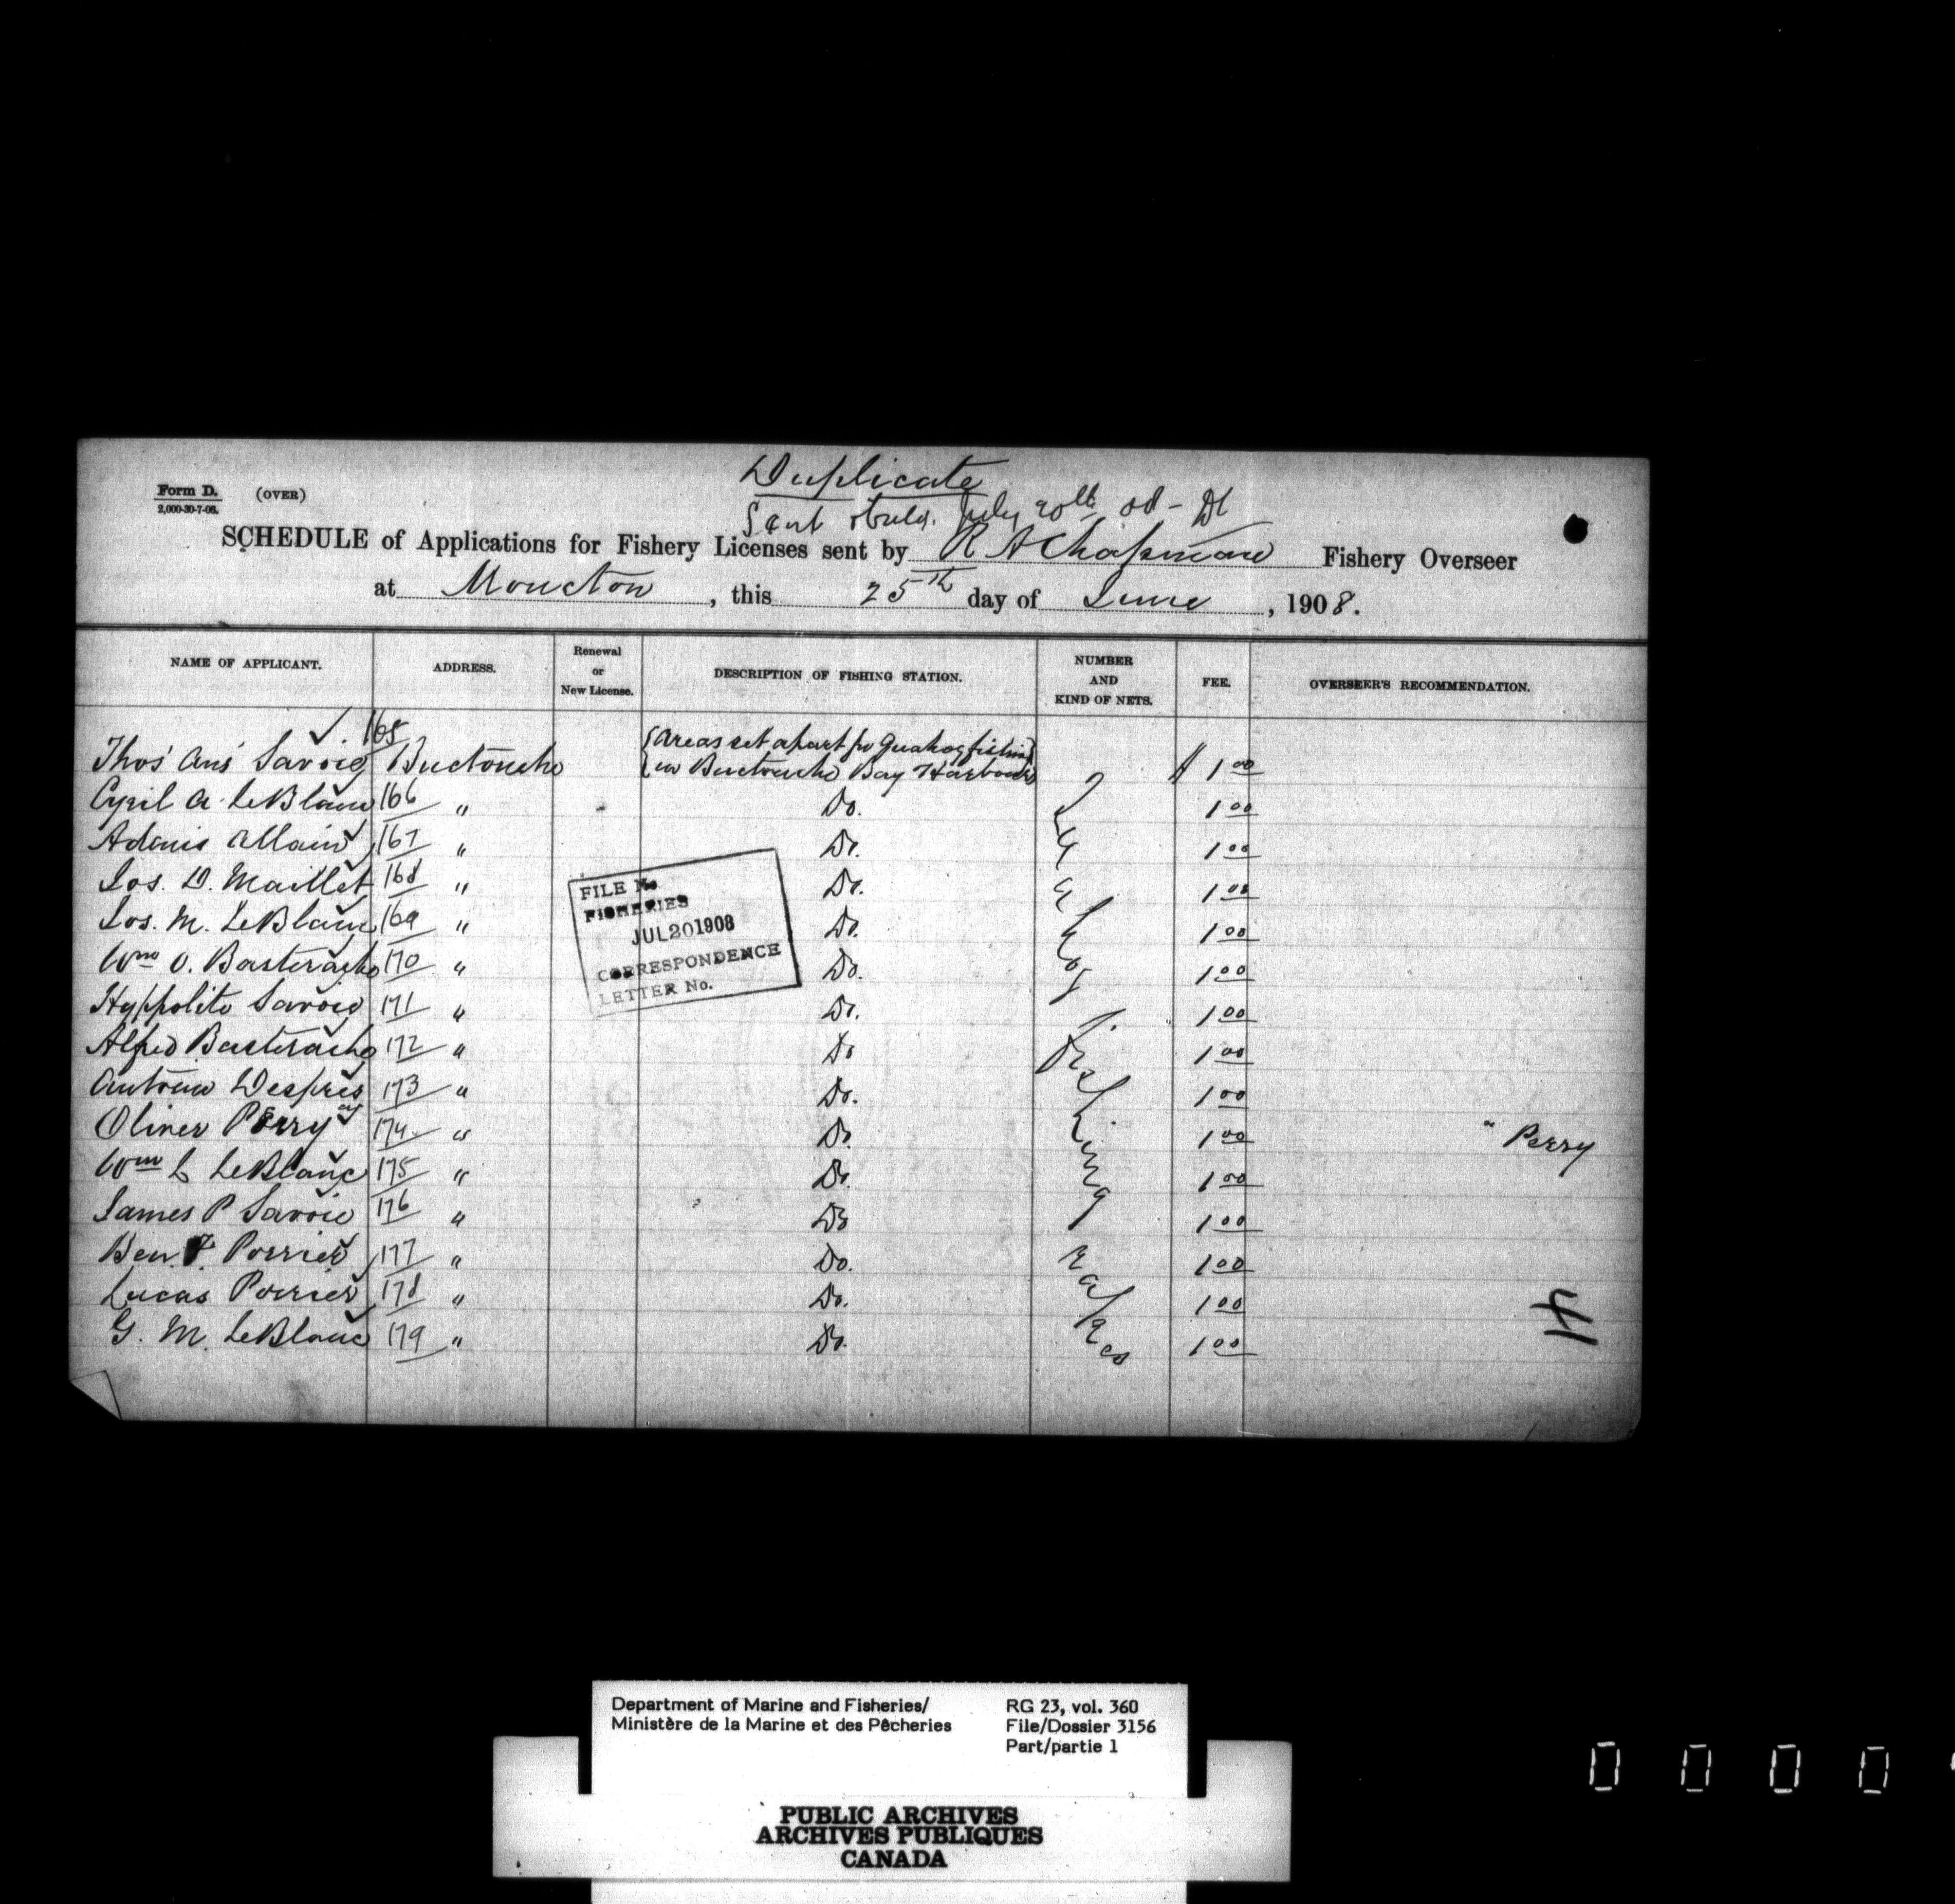 Duplicate
Form D. (OVER)
2,000-30-7-06.
Sent July 20th 08 - Dt
SCHEDULE of Applications for Fishery Licenses sent by R A Chapman Fishery Overseer
at Moncton, this 25th day of June, 1908.
NAME OF APPLICANT. ADDRESS. Renewal or New License. DESCRIPTION OF FISHING STATION. NUMBER AND KIND OF NETS. FEE. OVERSEER'S RECOMMENDATION.
Thos' Ans' Savoie 165 Buctouche {Areas set apart for Quahog fishing} {in Buctouche Bay Harbour} $ 1 00
Cyril A. LeBlanc 166 " Do. 1 00
Adenis Allain 167 " Do. 1 00
Jos. D. Maillet 168 " Do. 1 00
Jos. M. LeBlanc 169 " Do. 1 00
Wm O. Basterache 170 " Do. 1 00
Hyppolite Savoie 171 " Do. 1 00
Alfred Basterache 172 " Do 1 00
Antoine Despres 173 " Do. 1 00
Oliver Perry 174 " Do 1 00 " Perry
Wm L LeBlanc 175 " Do. 1 00
James P Savoie 176 " Do 1 00
Ben. F. Porrier 177 " Do. 1 00
Lucas Porrier 178 " Do. 1 00
G. M. LeBlanc 179 " Do. 1 00
Quahog Fishing rakes
FILE No
FISHERIES
JUL 20 1908
CORRESPONDENCE
LETTER No.
44
Department of Marine and Fisheries/
Ministère de la Marine et des Pêcheries
RG 23, vol. 360
File/Dossier 3156
Part/partie 1
PUBLIC ARCHIVES
ARCHIVES PUBLIQUES
CANADA
0 0 0 0